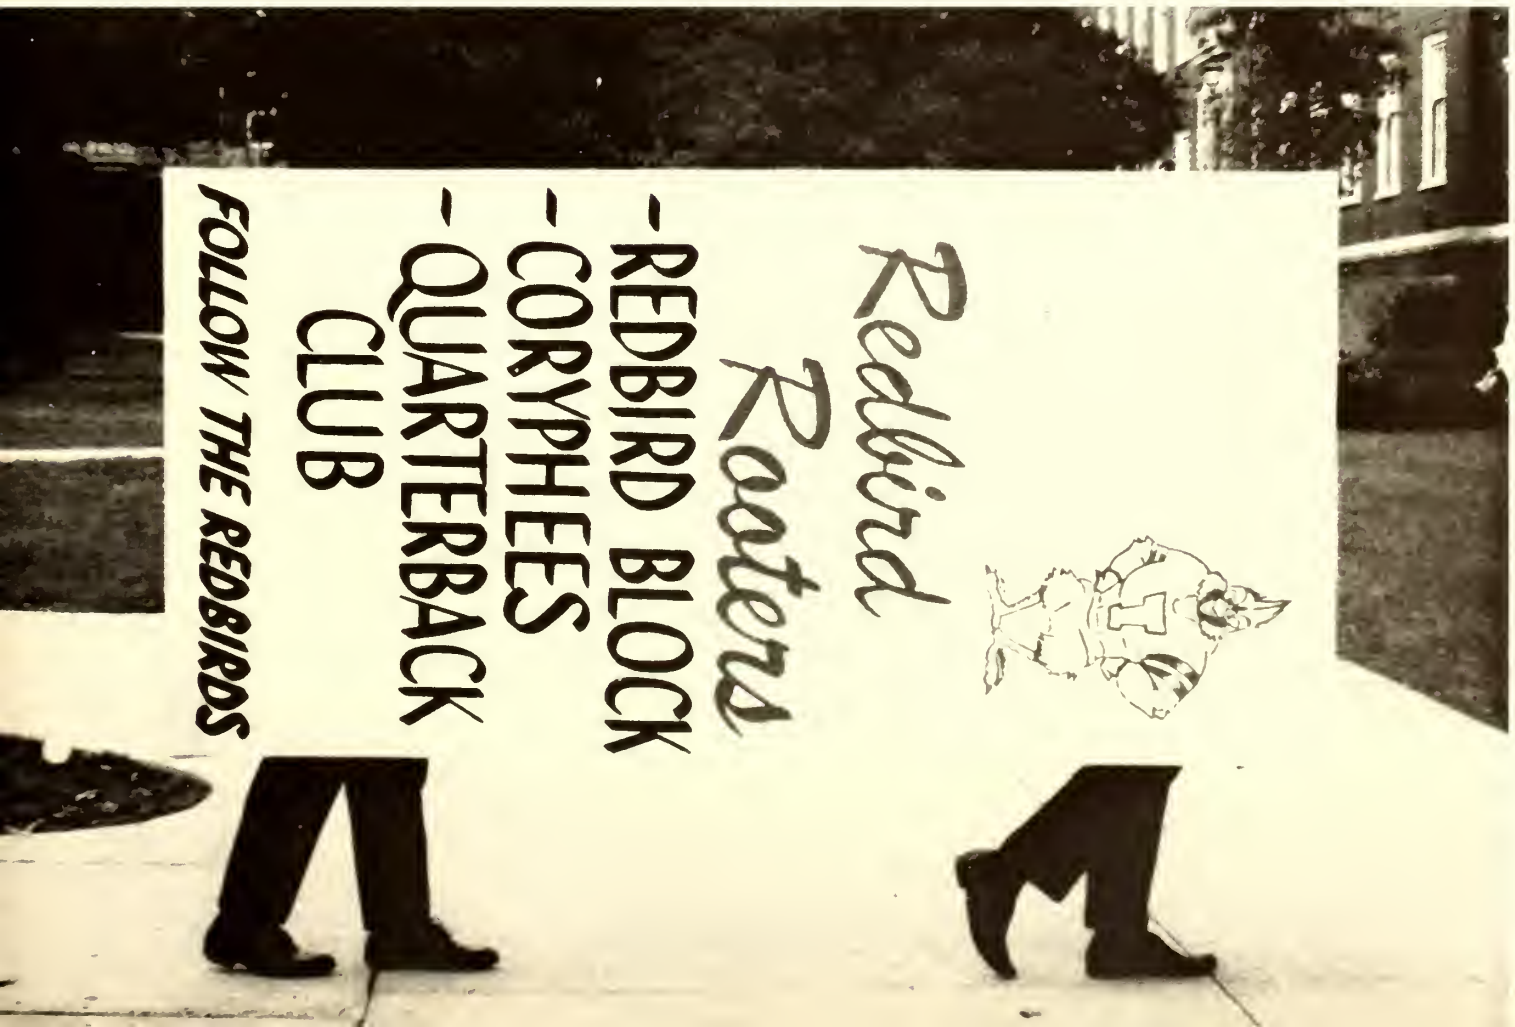 I
Redbird
Rooters
-REDBIRD BLOCK
-CORYPHEES
-QUARTERBACK
CLUB
FOLLOW THE REDBIRDS